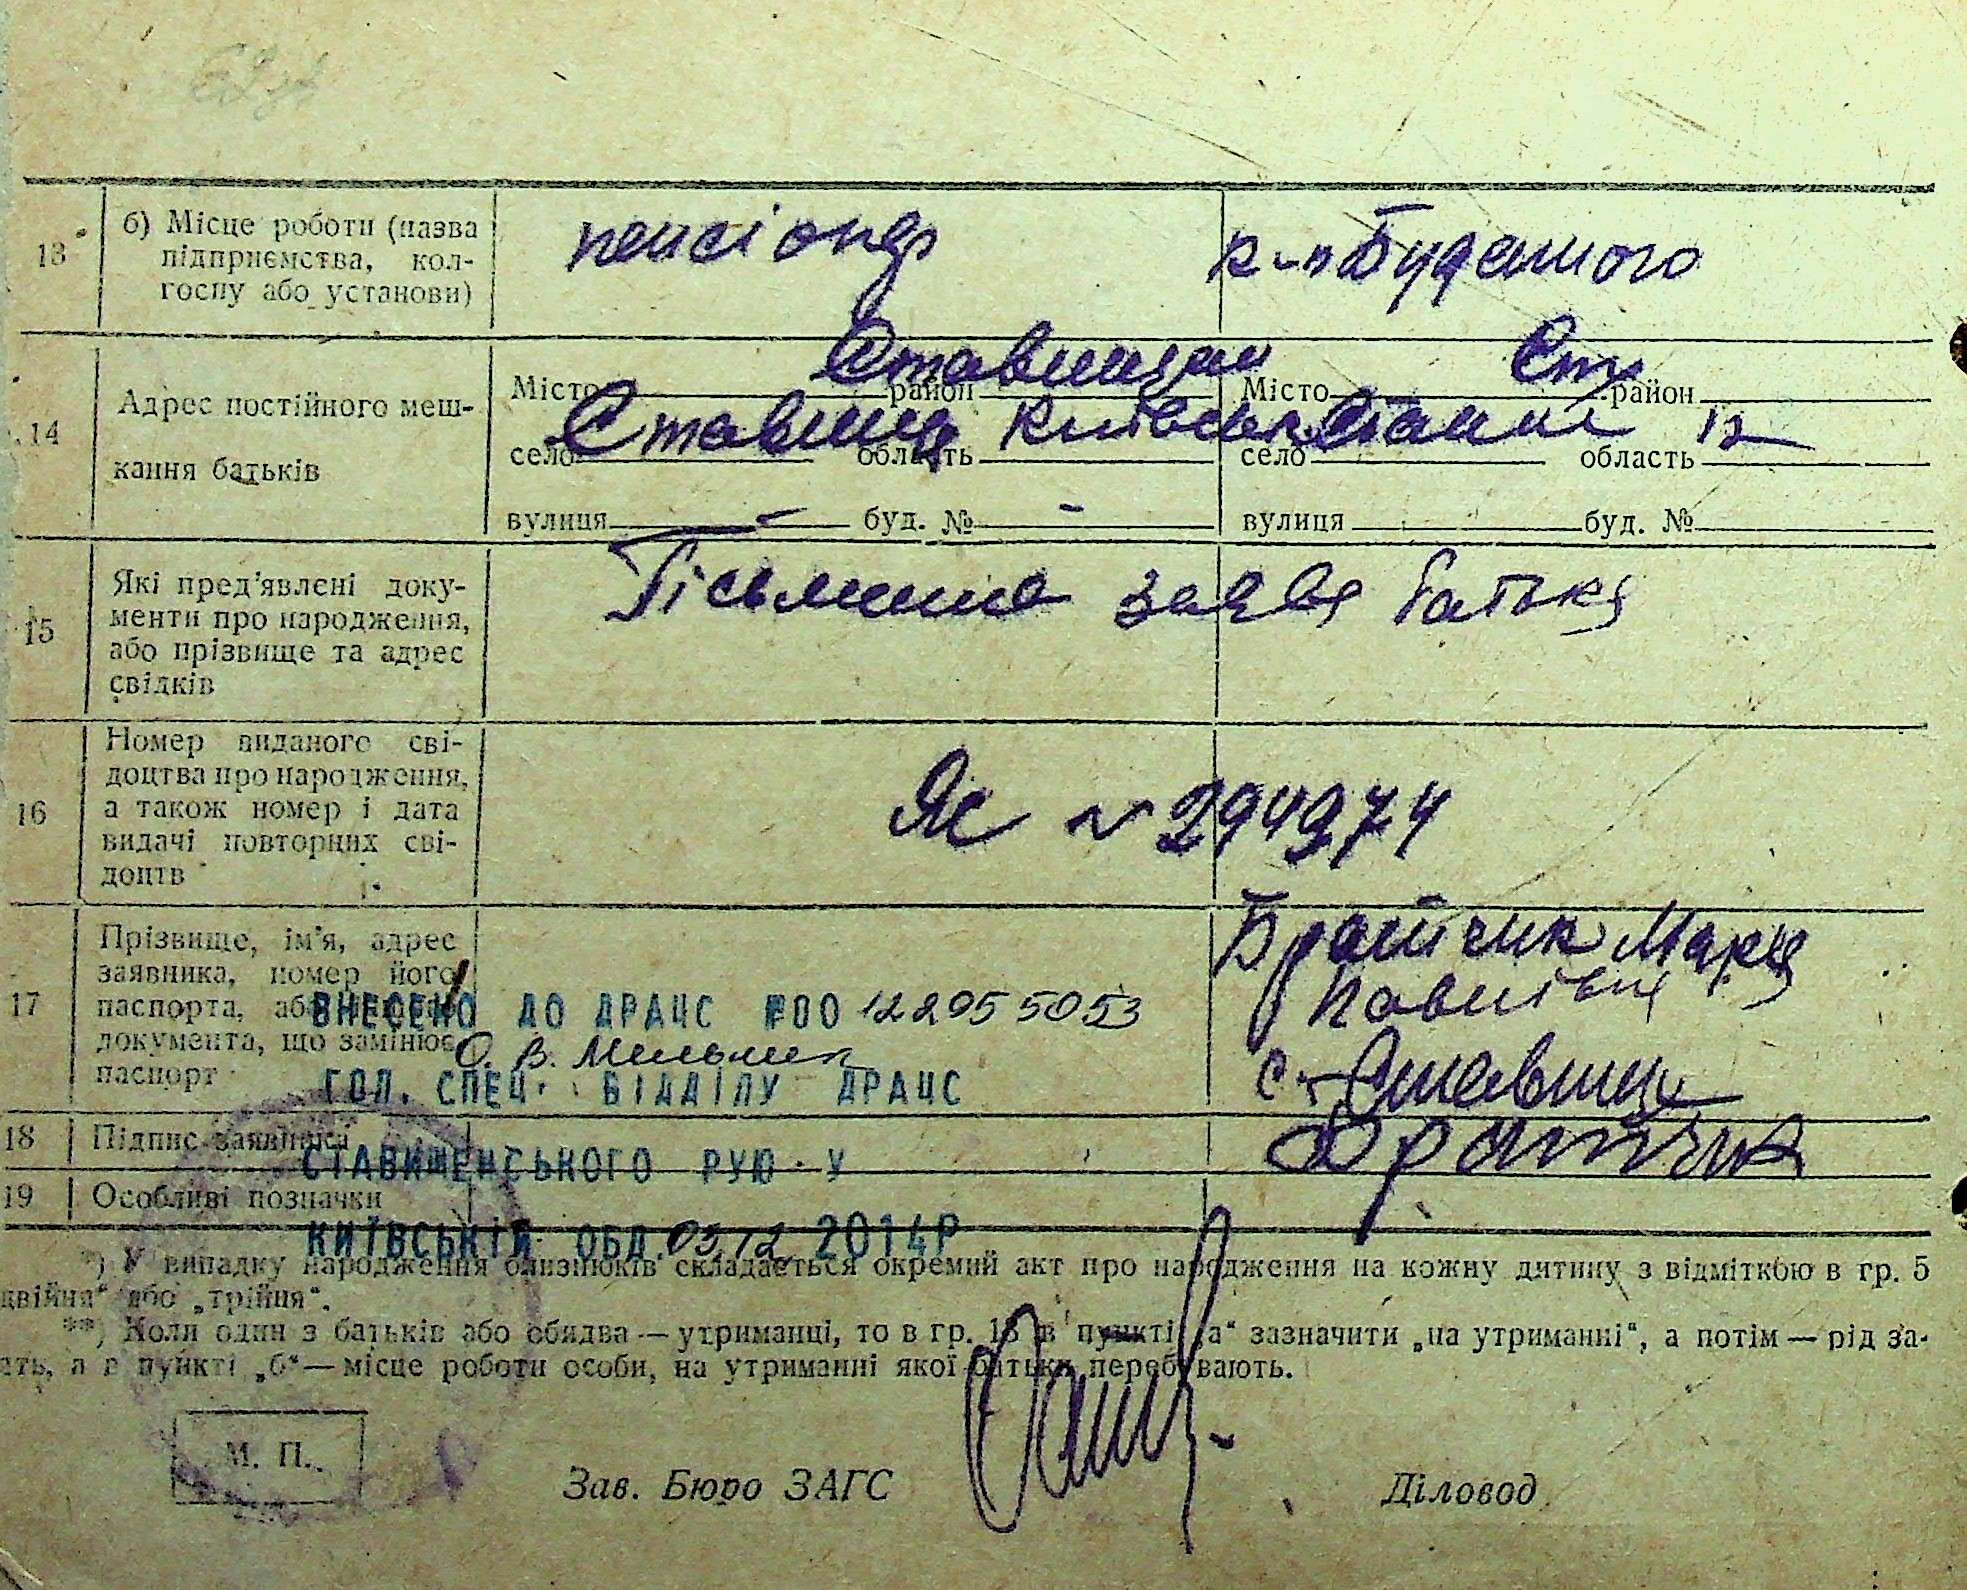 13
б) Місце роботи (назва
підприємства, кол-
госпу або установи)
пенсіонер
к-п Буденного
14
Адрес постійного меш-
кання батьків
Місто район Місто район
Ставище
село область село область
вулиця - буд. № - вулиця буд. №
15
Які пред'явлені доку-
менти про народження,
або прізвище та адрес
свідків
Пісьменне заява батька
16
Номер виданого сві-
доцтва про народження,
а також номер і дата
видачі повторних сві-
доцтв
№ 294974
17
Прізвище, ім'я, адрес
заявника, номер його
паспорта, або
документа, що замінює
паспорт
Братчик
с. Ставище
ВНЕСЕНО ДО ДРАЦС №00 122955053
О. В. Мельник
ГОЛ. СПЕЦ. ВІДДІЛУ ДРАЦС
СТАВИЩЕНСЬКОГО РУЮ У
КИЇВСЬКІЙ ОБЛ. 03.12.2014Р
18 Підпис заявника
Братчик
19 Особливі позначки
*) У випадку народження близнюків складається окремий акт про народження на кожну дитину з відміткою в гр. 5
двійня“ або „трійня“.
**) Коли один з батьків або обидва — утриманці, то в гр. 13 в пункті „а“ зазначити „на утриманні“, а потім — рід за-
ять, а в пункті „б“ — місце роботи особи, на утриманні якої батьки перебувають.
М. П.
Зав. Бюро ЗАГС
Діловод